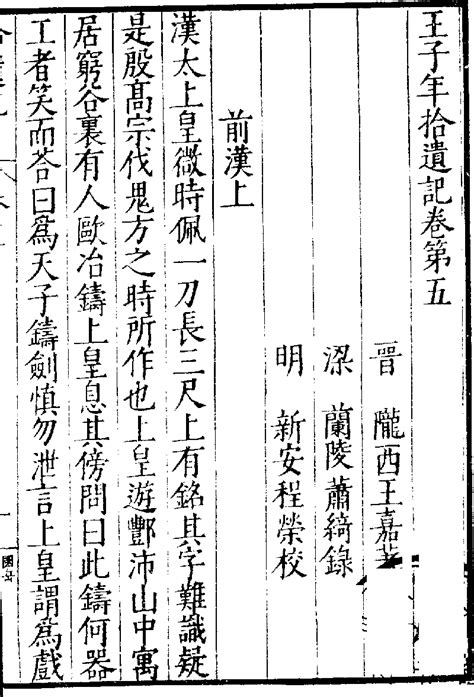 王子年拾遺記卷第五
晉　隴西王嘉著
梁　蘭陵蕭綺錄
明　新安程榮校
前漢上
漢太上皇微時佩一刀長三尺上有銘其字難識疑
是殷髙宗伐鬼方之時所作也上皇遊酆沛山中寓
居窮谷裏有人歐冶鑄上皇息其傍問曰此鑄何器
工者笑而荅曰爲天子鑄劍愼勿泄言上皇謂爲戲